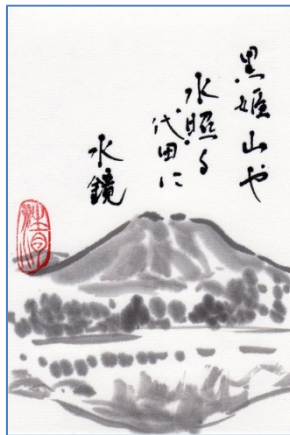 黒姫山や
水照る
代田に
水鏡